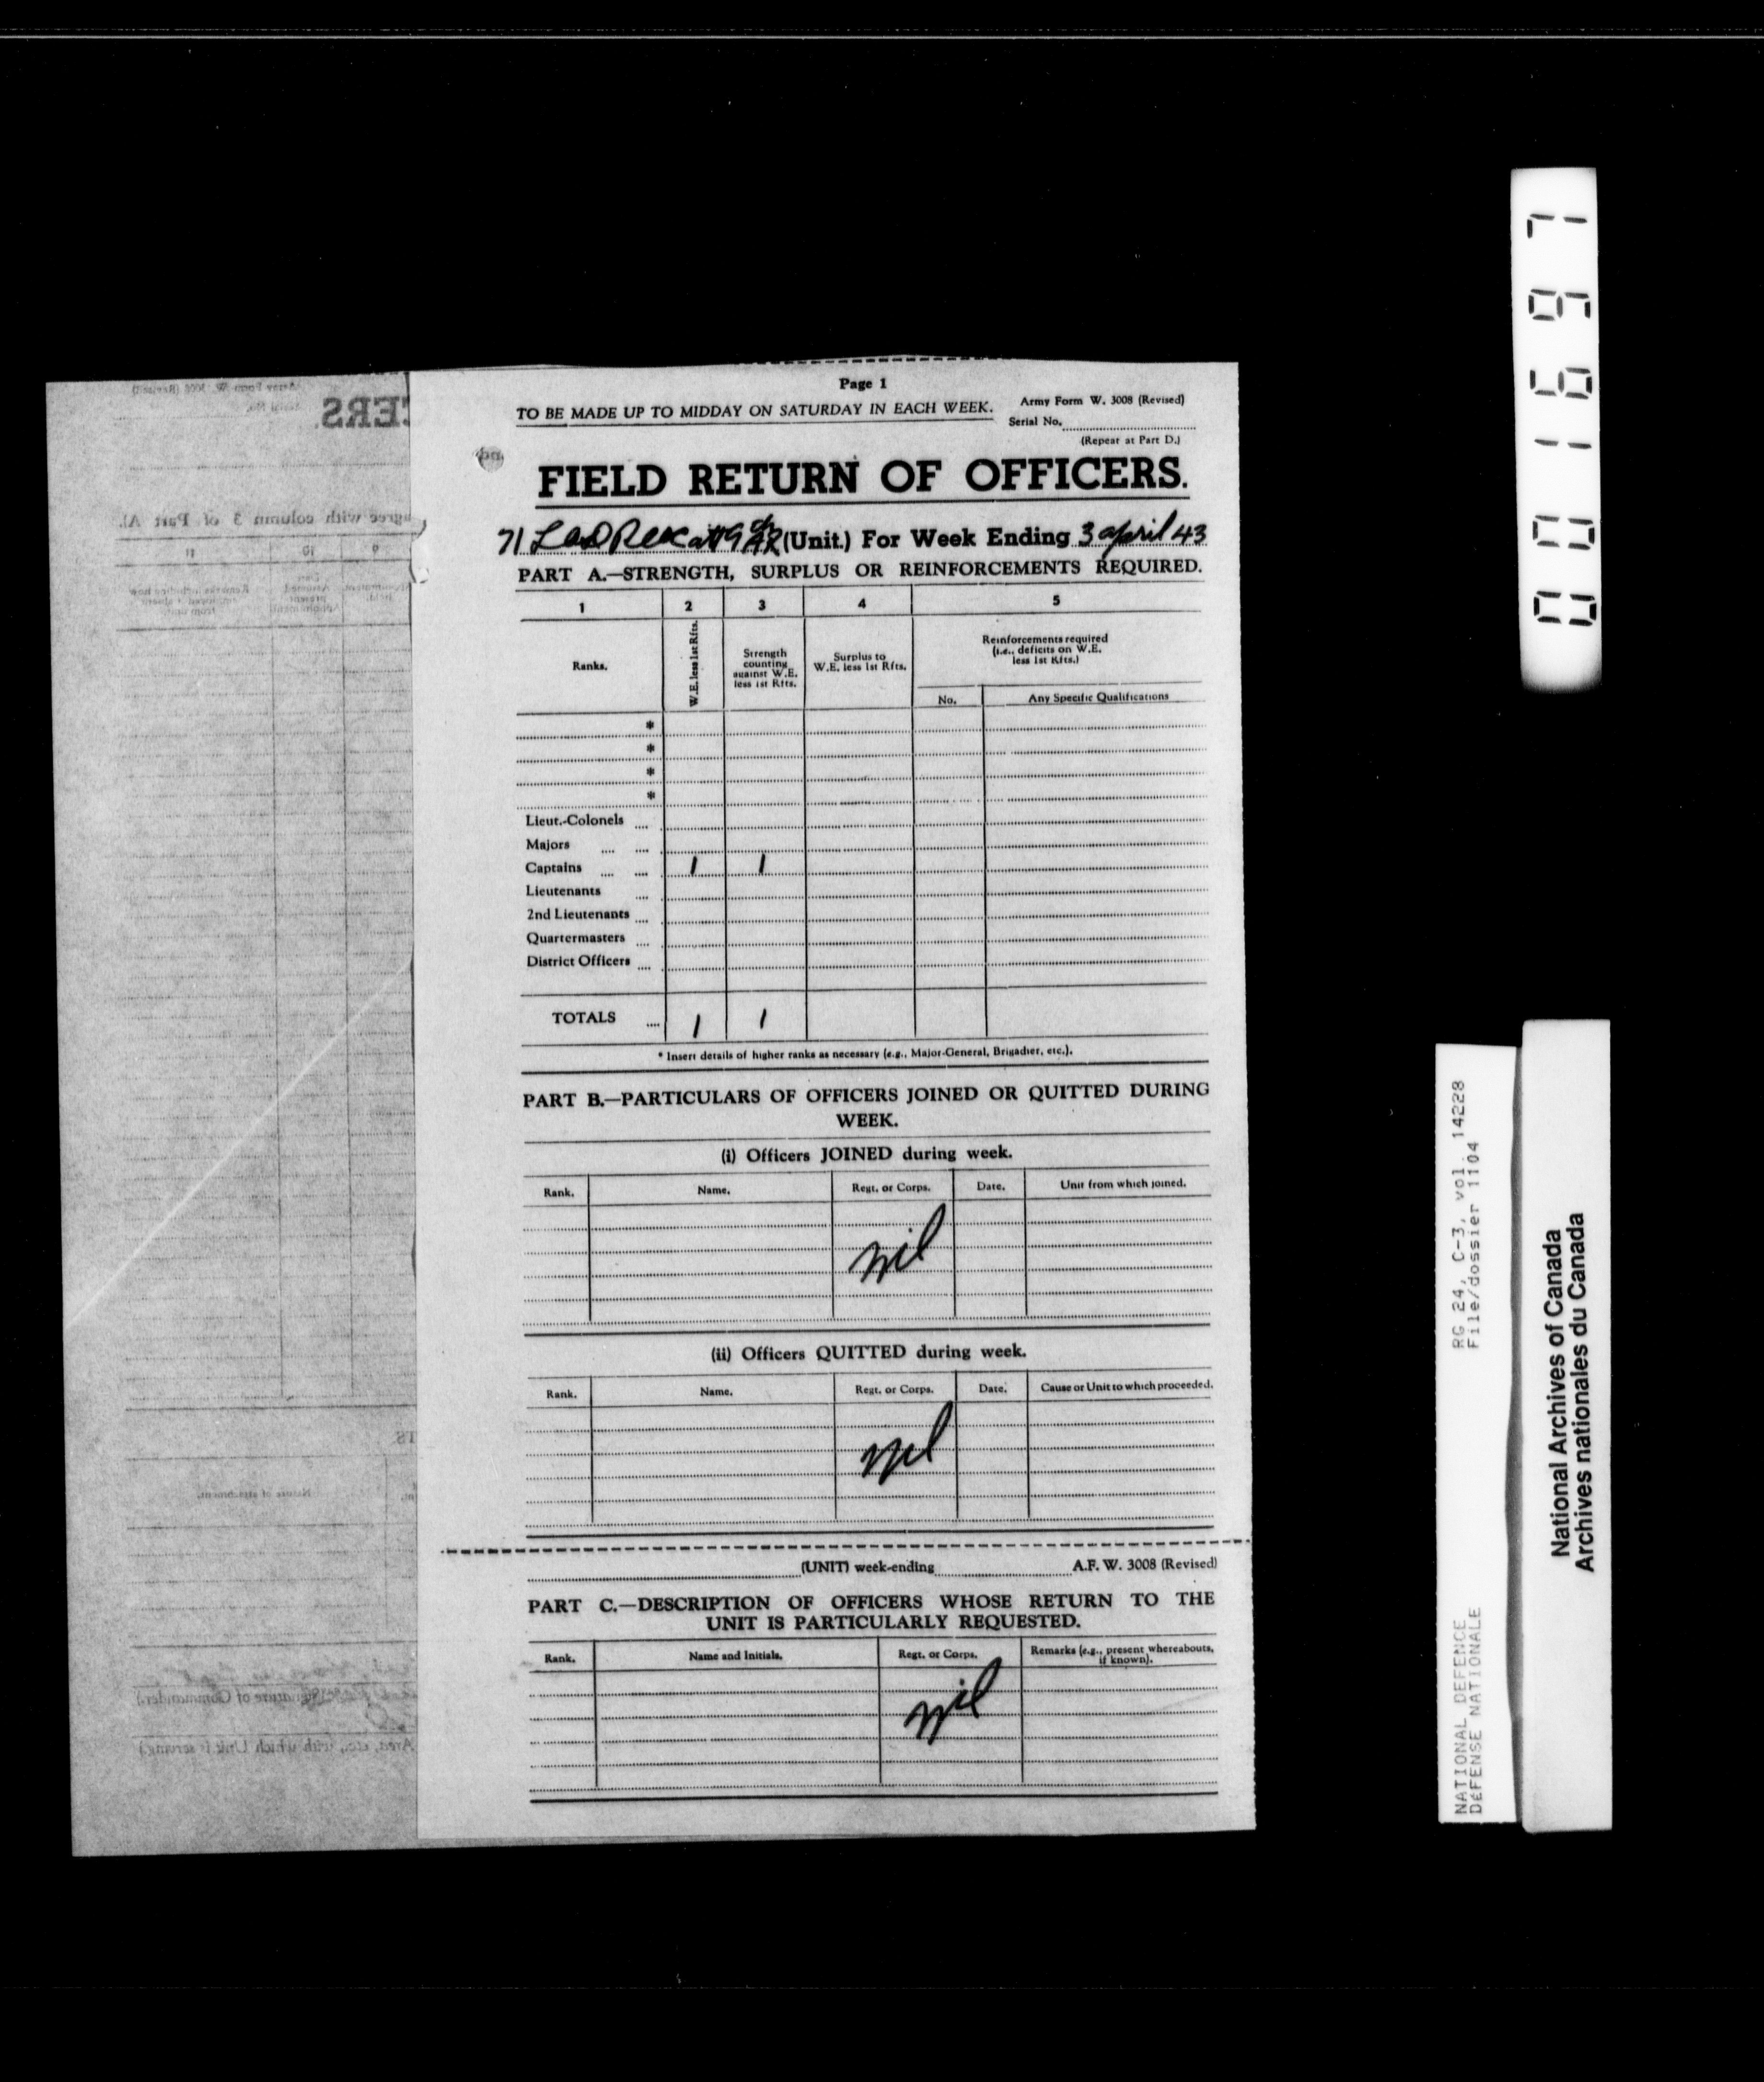 Page 1
TO BE MADE UP TO MIDDAY ON SATURDAY IN EACH WEEK.
Army Form W. 3008 (Revised)
Serial No.
(Repeat at Part D.)
FIELD RETURN OF OFFICERS.
71 LAD (Unit.) For Week Ending 3 april 43
PART A.—STRENGTH, SURPLUS OR REINFORCEMENTS REQUIRED.
1 2 3 4 5
Ranks.
W.E. less 1st Rfts.
Strength counting against W.E. less 1st Rfts.
Surplus to W.E. less 1st Rfts.
Reinforcements required (i.e., deficits on W.E. less 1st Rfts.)
No.
Any Specific Qualifications
*
*
*
*
Lieut.-Colonels ....
Majors .... ....
Captains .... .... 1 1
Lieutenants ....
2nd Lieutenants ....
Quartermasters ....
District Officers ....
TOTALS .... 1 1
* Insert details of higher ranks as necessary (e.g., Major-General, Brigadier, etc.).
PART B.—PARTICULARS OF OFFICERS JOINED OR QUITTED DURING
WEEK.
(i) Officers JOINED during week.
Rank. Name. Regt. or Corps. Date. Unit from which joined.
nil
(ii) Officers QUITTED during week.
Rank. Name. Regt. or Corps. Date. Cause or Unit to which proceeded.
nil
(UNIT) week-ending A.F. W. 3008 (Revised)
PART C.—DESCRIPTION OF OFFICERS WHOSE RETURN TO THE
UNIT IS PARTICULARLY REQUESTED.
Rank. Name and Initials. Regt. or Corps. Remarks (e.g., present whereabouts, if known).
nil
001697
RG 24, C-3, vol. 14228
File/dossier 1104
NATIONAL DEFENCE
DéFENSE NATIONALE
National Archives of Canada
Archives nationales du Canada